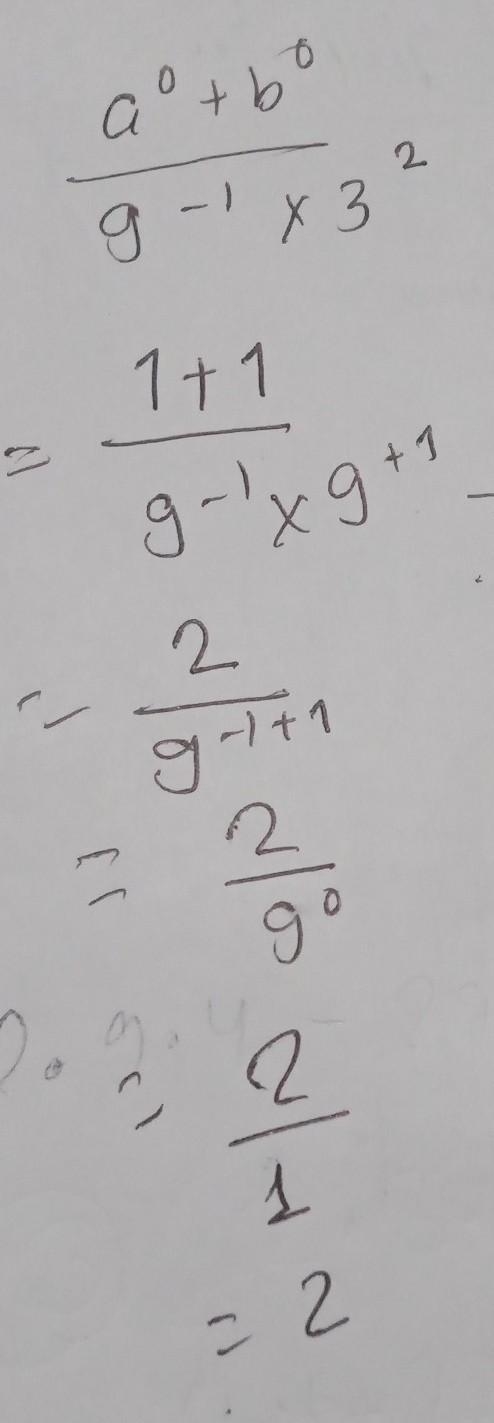 a⁰ + b⁰
9⁻¹ × 3²
1 + 1
=
9⁻¹ × 9⁺¹
2
=
9⁻¹⁺¹
2
=
9⁰
2
=
1
= 2